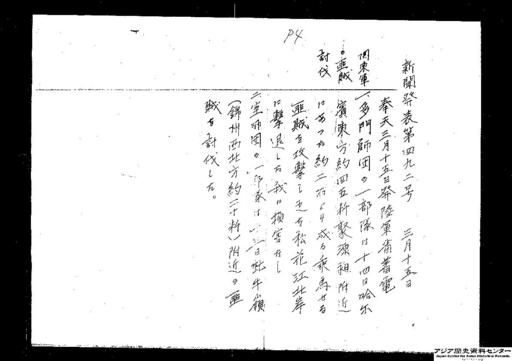 P4
新聞発表第四九二号 三月十五日
奉天三月十五日発陸軍省着電
関東軍
の匪賊
討伐
一、多門師団の一部隊は十四日哈爾
賓東方約四五粁聚源祖附近
にあつた約二百より成る乗馬せる
匪賊を攻撃し之を松花江北岸
に撃退した我に損害なし
二、室師団の一部隊は一三日牤牛嶺
(錦州西北方約三十粁)附近の匪
賊を討伐した。
アジア歴史資料センター
Japan Center for Asian Historical Records